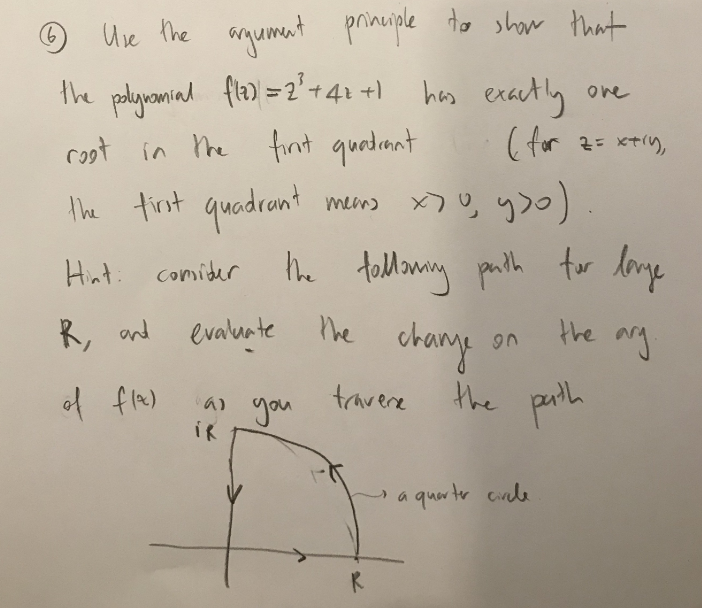 ⑥ Use the argument principle to show that
the polynomial f(z) = z³ + 4z + 1 has exactly one
root in the first quadrant (for z = x+iy,
the first quadrant means x>0, y>0).
Hint: consider the following path for large
R, and evaluate the change on the arg
of f(z) as you traverse the path
iR
a quarter circle
R